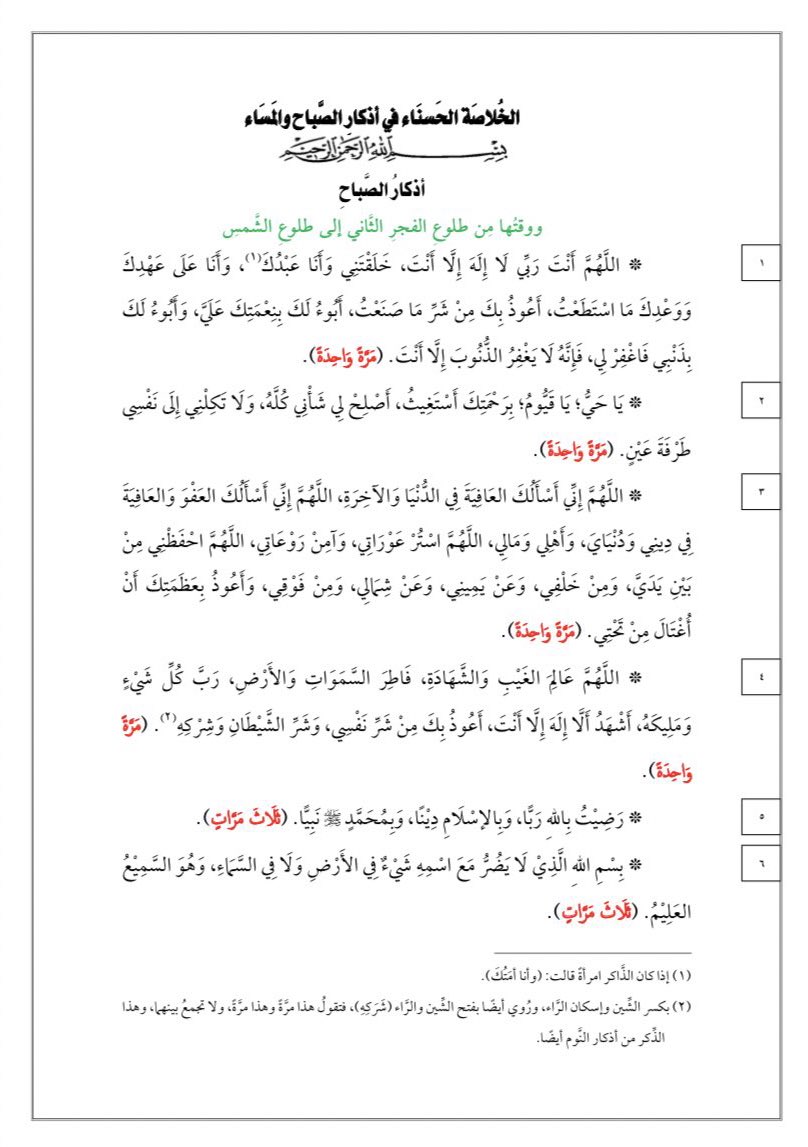 الخُلاصَة الحَسنَاء في أذكار الصَّباح والمَسَاء
بِسْمِ اللهِ الرَّحْمَنِ الرَّحِيمِ
أذكارُ الصَّباحِ
ووقتُها مِن طلوعِ الفجرِ الثَّاني إلى طلوعِ الشَّمسِ
١
❊ اللَّهُمَّ أَنْتَ رَبِّي لَا إِلَهَ إِلَّا أَنْتَ، خَلَقْتَنِي وَأَنَا عَبْدُكَ(١)، وَأَنَا عَلَى عَهْدِكَ
وَوَعْدِكَ مَا اسْتَطَعْتُ، أَعُوذُ بِكَ مِنْ شَرِّ مَا صَنَعْتُ، أَبُوءُ لَكَ بِنِعْمَتِكَ عَلَيَّ، وَأَبُوءُ لَكَ
بِذَنْبِي فَاغْفِرْ لِي، فَإِنَّهُ لَا يَغْفِرُ الذُّنُوبَ إِلَّا أَنْتَ. (مَرَّةً وَاحِدَةً).
٢
❊ يَا حَيُّ؛ يَا قَيُّومُ؛ بِرَحْمَتِكَ أَسْتَغِيثُ، أَصْلِحْ لِي شَأْنِي كُلَّهُ، وَلَا تَكِلْنِي إِلَى نَفْسِي
طَرْفَةَ عَيْنٍ. (مَرَّةً وَاحِدَةً).
٣
❊ اللَّهُمَّ إِنِّي أَسْأَلُكَ العَافِيَةَ فِي الدُّنْيَا وَالآخِرَةِ، اللَّهُمَّ إِنِّي أَسْأَلُكَ العَفْوَ وَالعَافِيَةَ
فِي دِينِي وَدُنْيَايَ، وَأَهْلِي وَمَالِي، اللَّهُمَّ اسْتُرْ عَوْرَاتِي، وَآمِنْ رَوْعَاتِي، اللَّهُمَّ احْفَظْنِي مِنْ
بَيْنِ يَدَيَّ، وَمِنْ خَلْفِي، وَعَنْ يَمِينِي، وَعَنْ شِمَالِي، وَمِنْ فَوْقِي، وَأَعُوذُ بِعَظَمَتِكَ أَنْ
أُغْتَالَ مِنْ تَحْتِي. (مَرَّةً وَاحِدَةً).
٤
❊ اللَّهُمَّ عَالِمَ الغَيْبِ وَالشَّهَادَةِ، فَاطِرَ السَّمَوَاتِ وَالأَرْضِ، رَبَّ كُلِّ شَيْءٍ
وَمَلِيكَهُ، أَشْهَدُ أَلَّا إِلَهَ إِلَّا أَنْتَ، أَعُوذُ بِكَ مِنْ شَرِّ نَفْسِي، وَشَرِّ الشَّيْطَانِ وَشِرْكِهِ(٢). (مَرَّةً
وَاحِدَةً).
٥
❊ رَضِيْتُ بِاللهِ رَبًّا، وَبِالإِسْلَامِ دِيْنًا، وَبِمُحَمَّدٍ ﷺ نَبِيًّا. (ثَلَاثَ مَرَّاتٍ).
٦
❊ بِسْمِ اللهِ الَّذِيْ لَا يَضُرُّ مَعَ اسْمِهِ شَيْءٌ فِي الأَرْضِ وَلَا فِي السَّمَاءِ، وَهُوَ السَّمِيْعُ
العَلِيْمُ. (ثَلَاثَ مَرَّاتٍ).
(١) إذا كان الذَّاكر امرأةً قالت: (وأنا أمَتُكَ).
(٢) بكسر الشِّين وإسكان الرَّاء، ورُوي أيضًا بفتح الشِّين والرَّاء (شَرَكِهِ)، فتقولُ هذا مرَّةً وهذا مرَّةً، ولا تجمعُ بينهما، وهذا
الذِّكر من أذكار النَّوم أيضًا.